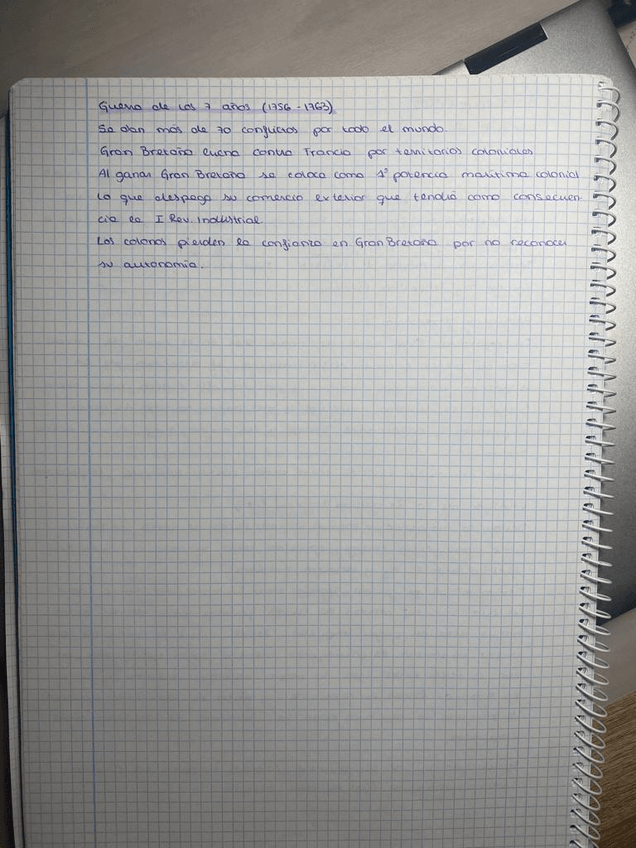 Guerra de los 7 años (1756-1763)
Se dan más de 70 conflictos por todo el mundo.
Gran Bretaña lucha contra Francia por territorios coloniales
Al ganar Gran Bretaña se coloca como 1º potencia marítima colonial
lo que despega su comercio exterior que tendrá como consecuen-
cia la I Rev. Industrial.
Los colonos pierden la confianza en Gran Bretaña por no reconocer
su autonomía.